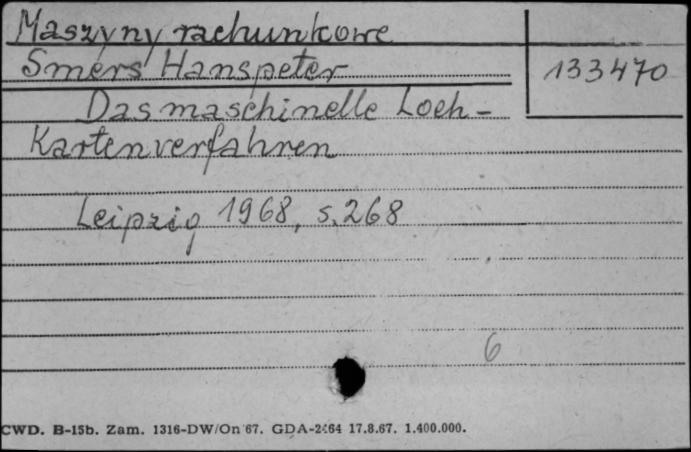 Maszyny rachunkowe
Smers Hanspeter
133470
Das maschinelle Loch-
Kartenverfahren
Leipzig 1968, s. 268
6
CWD. B-15b. Zam. 1316-DW/On 67. GDA-2464 17.8.67. 1.400.000.